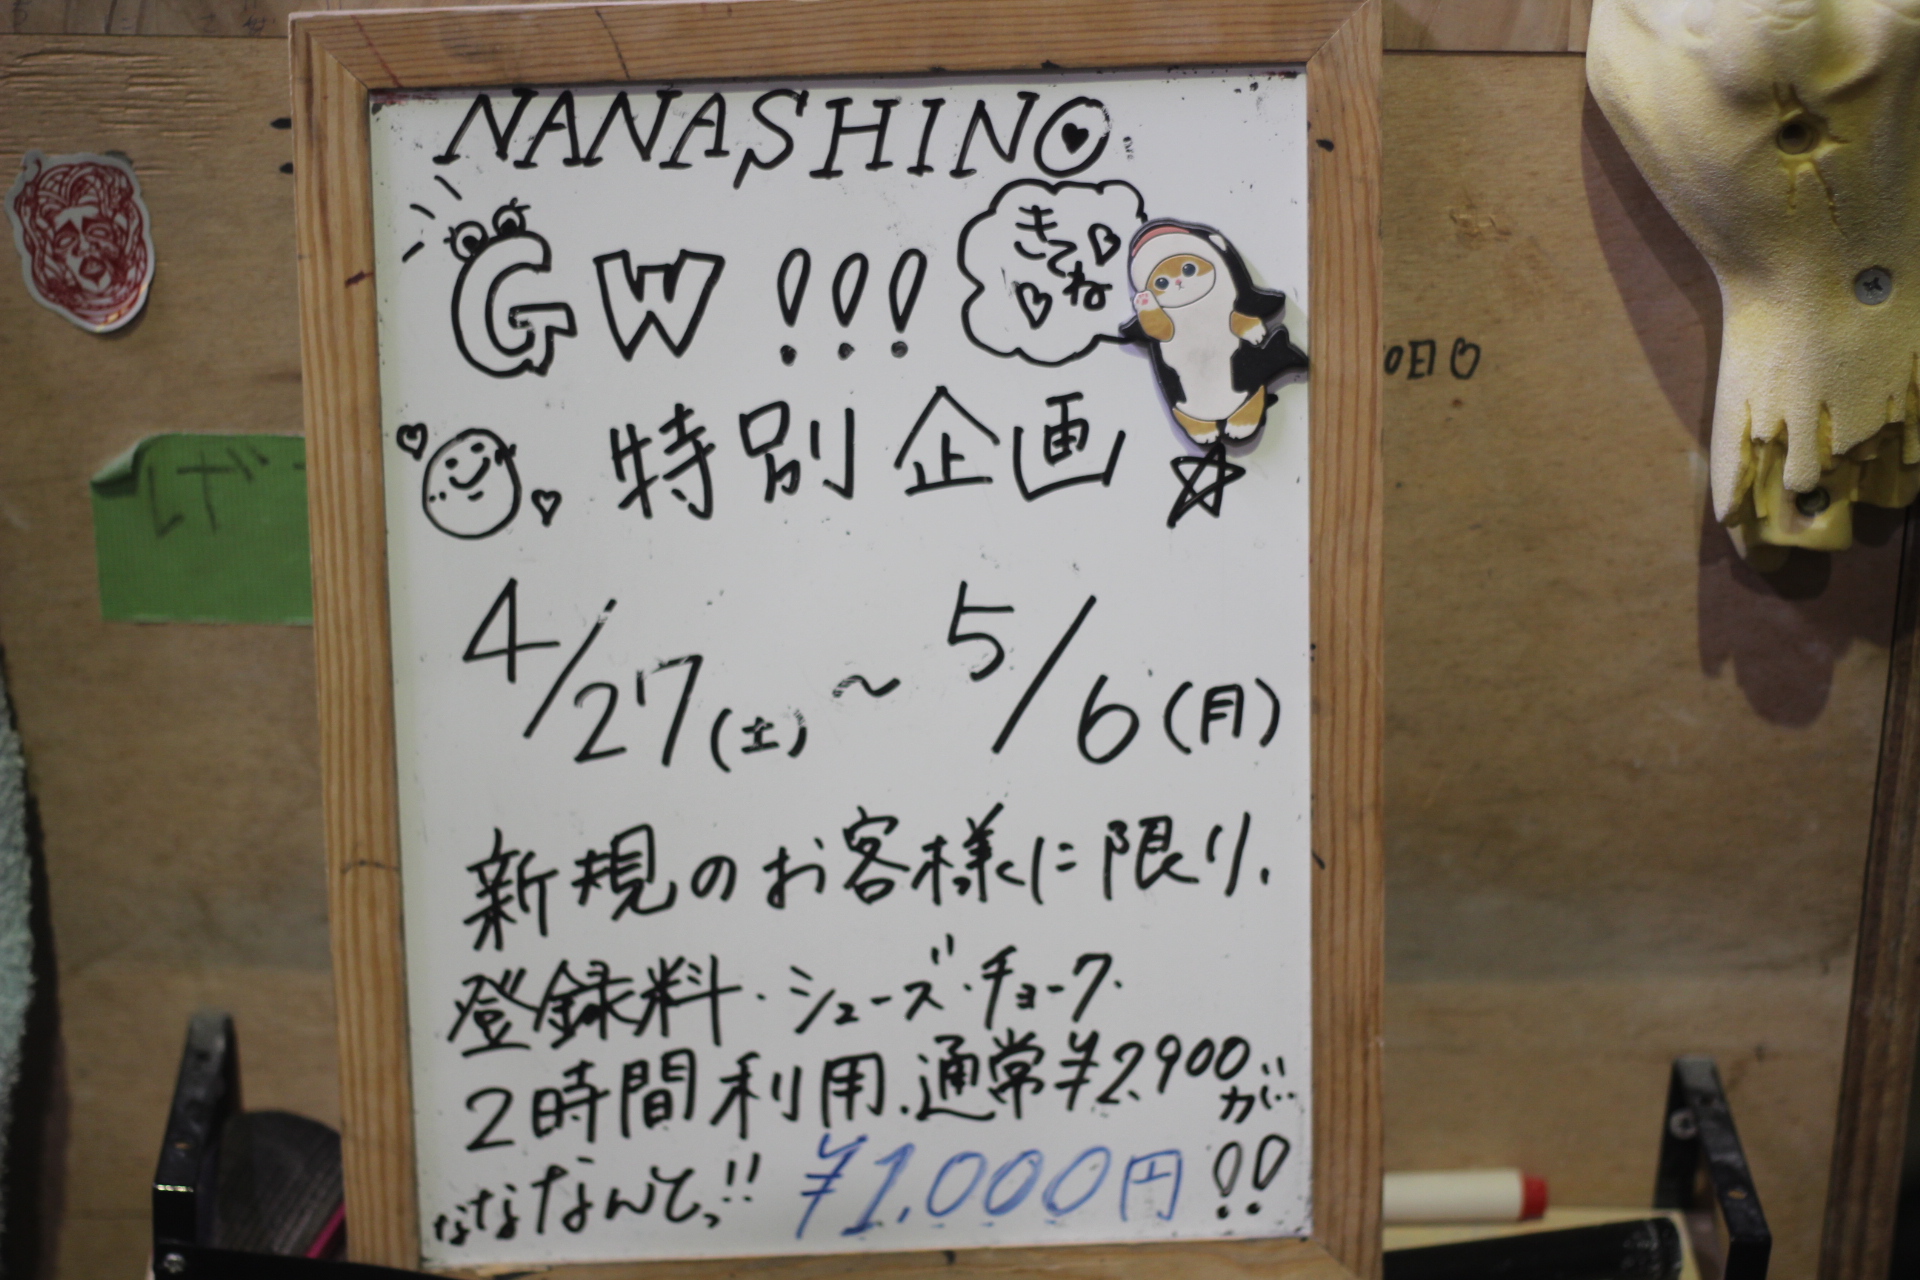 NANASHINO
GW!!!
きてね
特別企画
4/27(土)~5/6(月)
新規のお客様に限り、
登録料・シューズ・チョーク・
2時間利用、通常¥2,900が…
ななななんとっ!!¥1,000円!!
0日